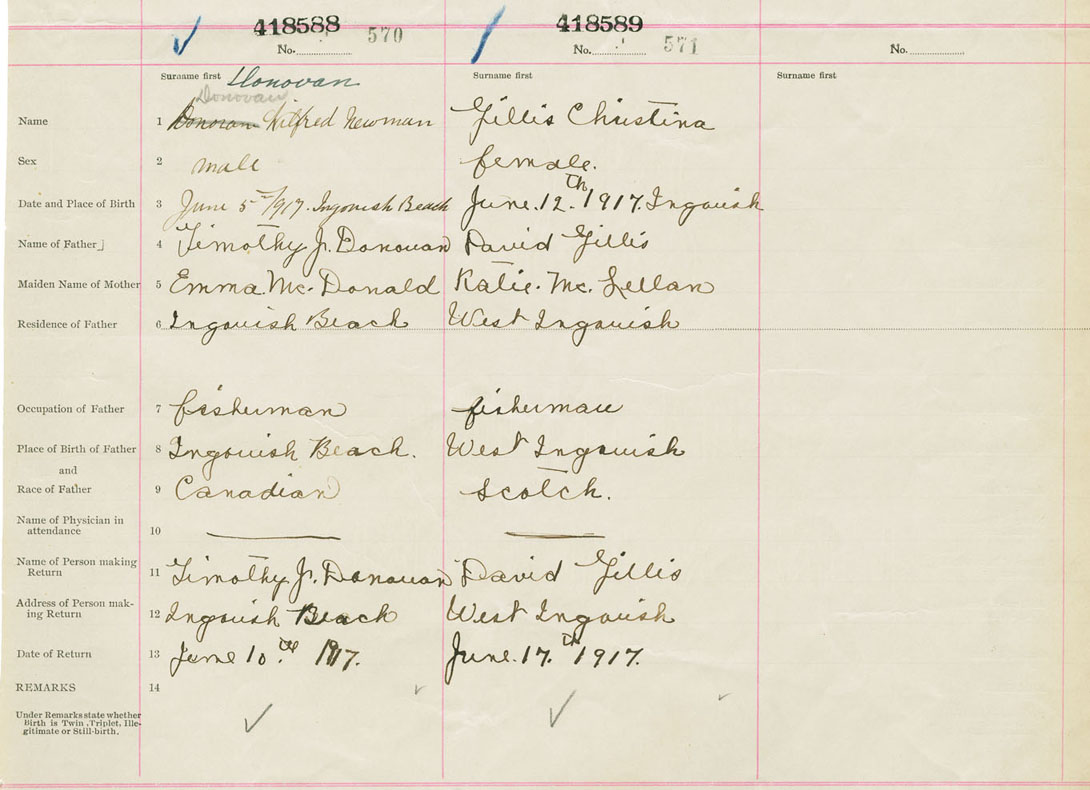 418588 418589
No. 570 No. 571 No.
Surname first Donovan Surname first Surname first
Donovan
Name 1 Donovan Wilfred Newman Gillis Christina
Sex 2 male female.
Date and Place of Birth 3 June 5th 1917. Ingonish Beach June. 12.th 1917. Ingonish
Name of Father 4 Timothy J. Donovan David Gillis
Maiden Name of Mother 5 Emma. Mc. Donald Katie. Mc. Lellan
Residence of Father 6 Ingonish Beach West Ingonish
Occupation of Father 7 fisherman fisherman
Place of Birth of Father 8 Ingonish Beach. West Ingonish
and
Race of Father 9 Canadian Scotch.
Name of Physician in
attendance 10
Name of Person making
Return 11 Timothy J. Donovan David Gillis
Address of Person mak-
ing Return 12 Ingonish Beach West Ingonish
Date of Return 13 June 10.th 1917. June. 17.th 1917.
REMARKS 14
Under Remarks state whether
Birth is Twin, Triplet, Ille-
gitimate or Still-birth.